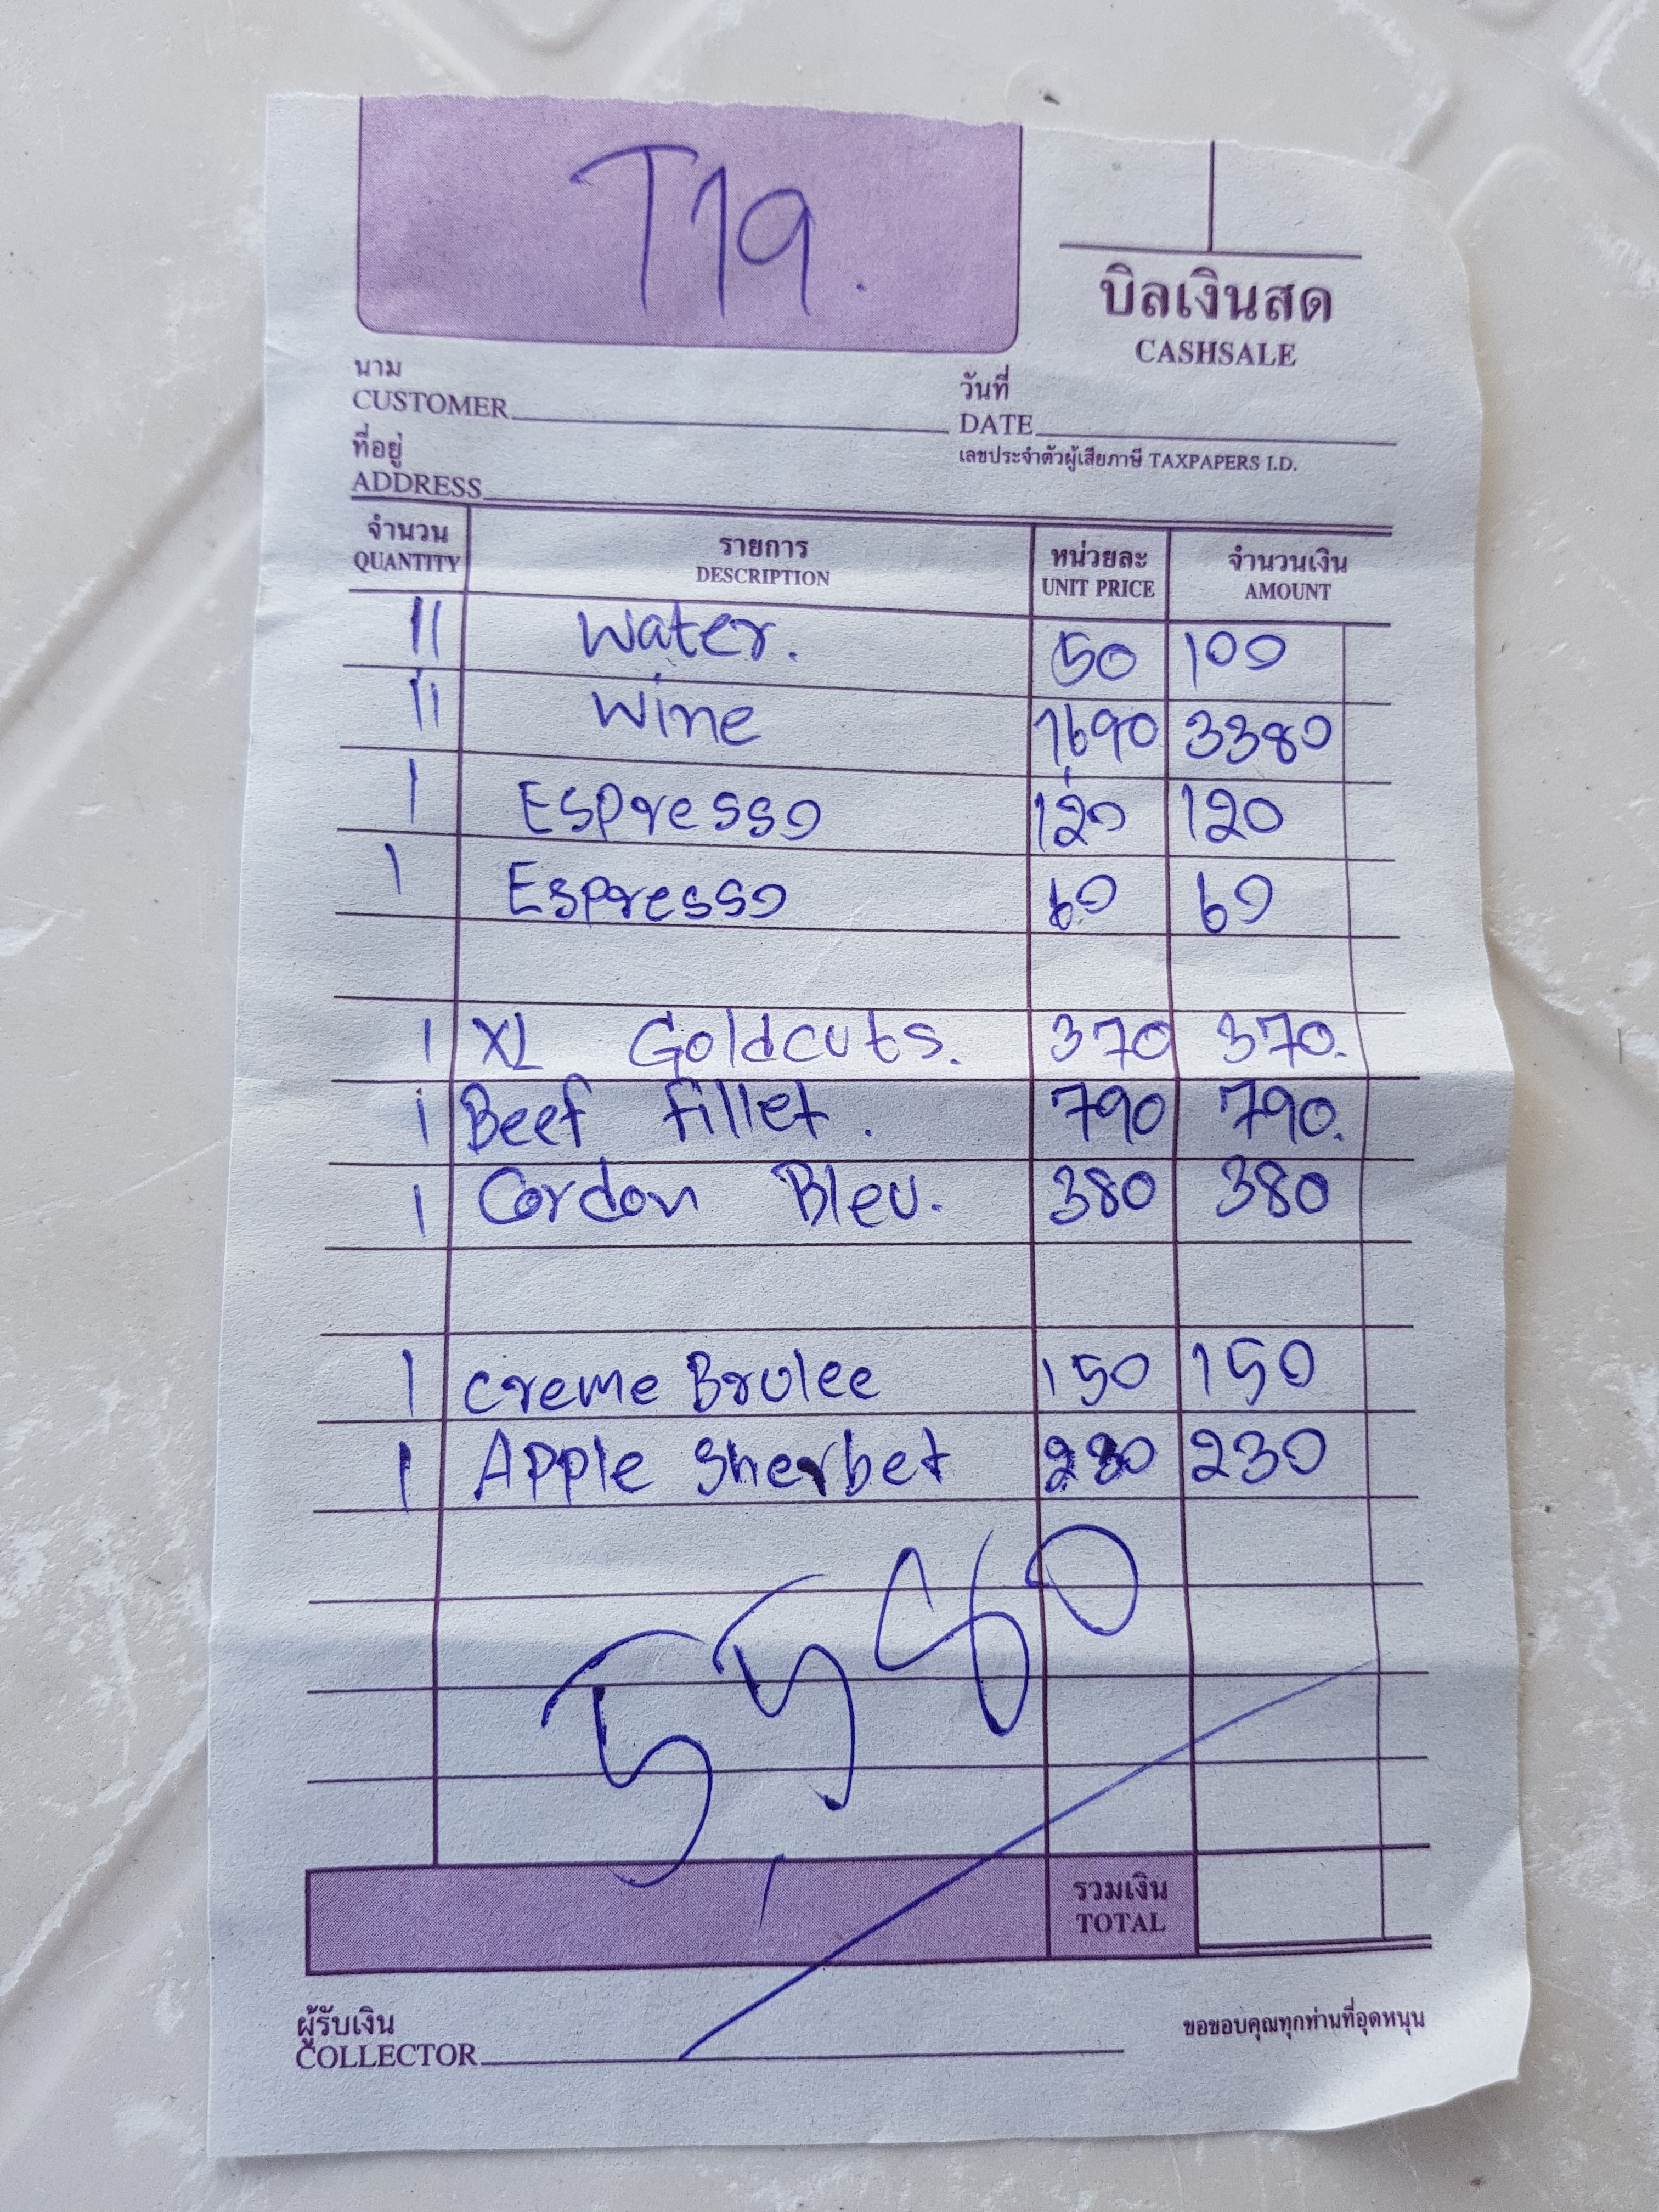 T19.
บิลเงินสด
CASHSALE
นาม
CUSTOMER
วันที่
DATE
ที่อยู่
ADDRESS
เลขประจำตัวผู้เสียภาษี TAXPAPERS I.D.
จำนวน QUANTITY รายการ DESCRIPTION หน่วยละ UNIT PRICE จำนวนเงิน AMOUNT
11 Water. 50 100
11 Wine 1690 3380
1 Espresso 120 120
1 Espresso 60 60
1 XL Goldcuts. 370 370.
1 Beef fillet. 790 790.
1 Cordon Bleu. 380 380
1 Creme Brulee 150 150
1 Apple Sherbet 230 230
5,580
รวมเงิน
TOTAL
ผู้รับเงิน
COLLECTOR
ขอขอบคุณทุกท่านที่อุดหนุน